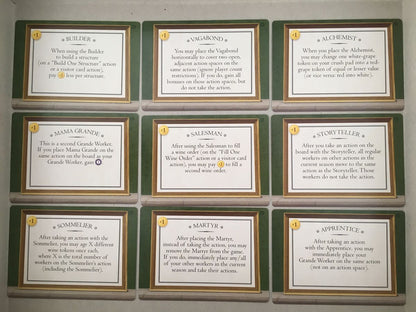 $1
BUILDER
When using the Builder
to build a structure
(on a "Build One Structure" action
or a visitor card action),
pay $1 less per structure.
$1
VAGABOND
You may place the Vagabond
horizontally to cover two open,
adjacent action spaces on the
same action (ignore player count
restrictions). If you do, gain all
bonuses on those action spaces, but
do not take the action.
$1
ALCHEMIST
When you place the Alchemist,
you may change one white-grape
token on your crush pad into a red-
grape token of equal or lesser value
(or vice versa: red into white).
$1
MAMA GRANDE
This is a second Grande Worker.
If you place Mama Grande on the
same action on the board as your
Grande Worker, gain
$1
SALESMAN
After using the Salesman to fill
a wine order (on the "Fill One
Wine Order" action or a visitor card
action), you may pay $1 to fill a
second wine order.
$1
STORYTELLER
After you take an action on the
board with the Storyteller, all regular
workers on other actions in the
current season move to the same
action as the Storyteller. Those
workers do not take the action.
$1
SOMMELIER
After taking an action with the
Sommelier, you may age X different
wine tokens once each,
where X is the total number of
workers on the Sommelier's action
(including the Sommelier).
$1
MARTYR
After placing the Martyr,
instead of taking the action, you may
remove the Martyr from the game.
If you do, immediately place any/all
of your other workers in the current
season and take their actions.
$1
APPRENTICE
After taking an action
with the Apprentice, you may
immediately place your
Grande Worker on the same action
(not on an action space).